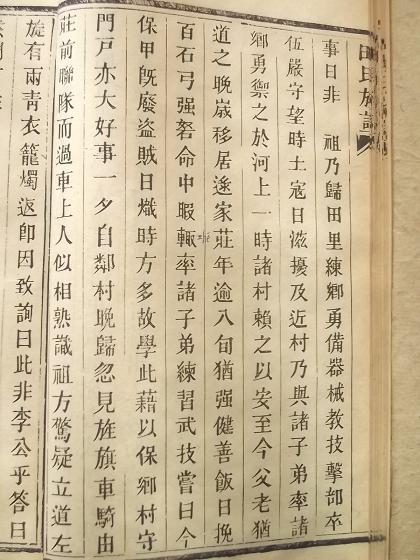 田氏族譜
事日非　祖乃歸田里練鄉勇備器械教技擊部卒
伍嚴守望時土寇日滋擾及近村乃與諸子弟率諸
鄉勇禦之於河上一時諸村賴之以安至今父老猶
道之晚嵗移居逵家莊年逾八旬猶强健善飯日挽
百石弓强弩命中暇輙率諸子弟練習武技嘗曰今
保甲旣廢盜賊日熾時方多故學此藉以保鄉村守
門戸亦大好事一夕自鄰村晩歸忽見旌旗車騎由
莊前聯隊而過車上人似相熟識祖方驚疑立道左
旋有兩青衣籠燭返卽因致詢曰此非李公乎答曰